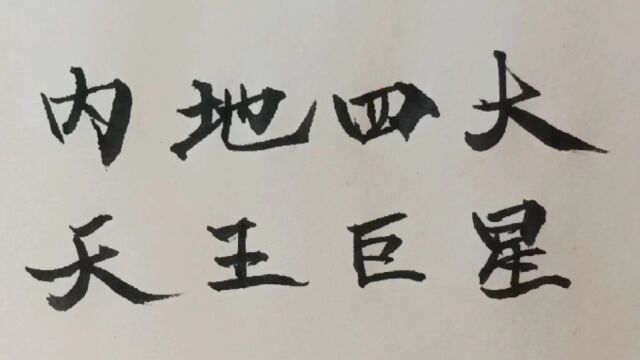 内地四大
天王巨星